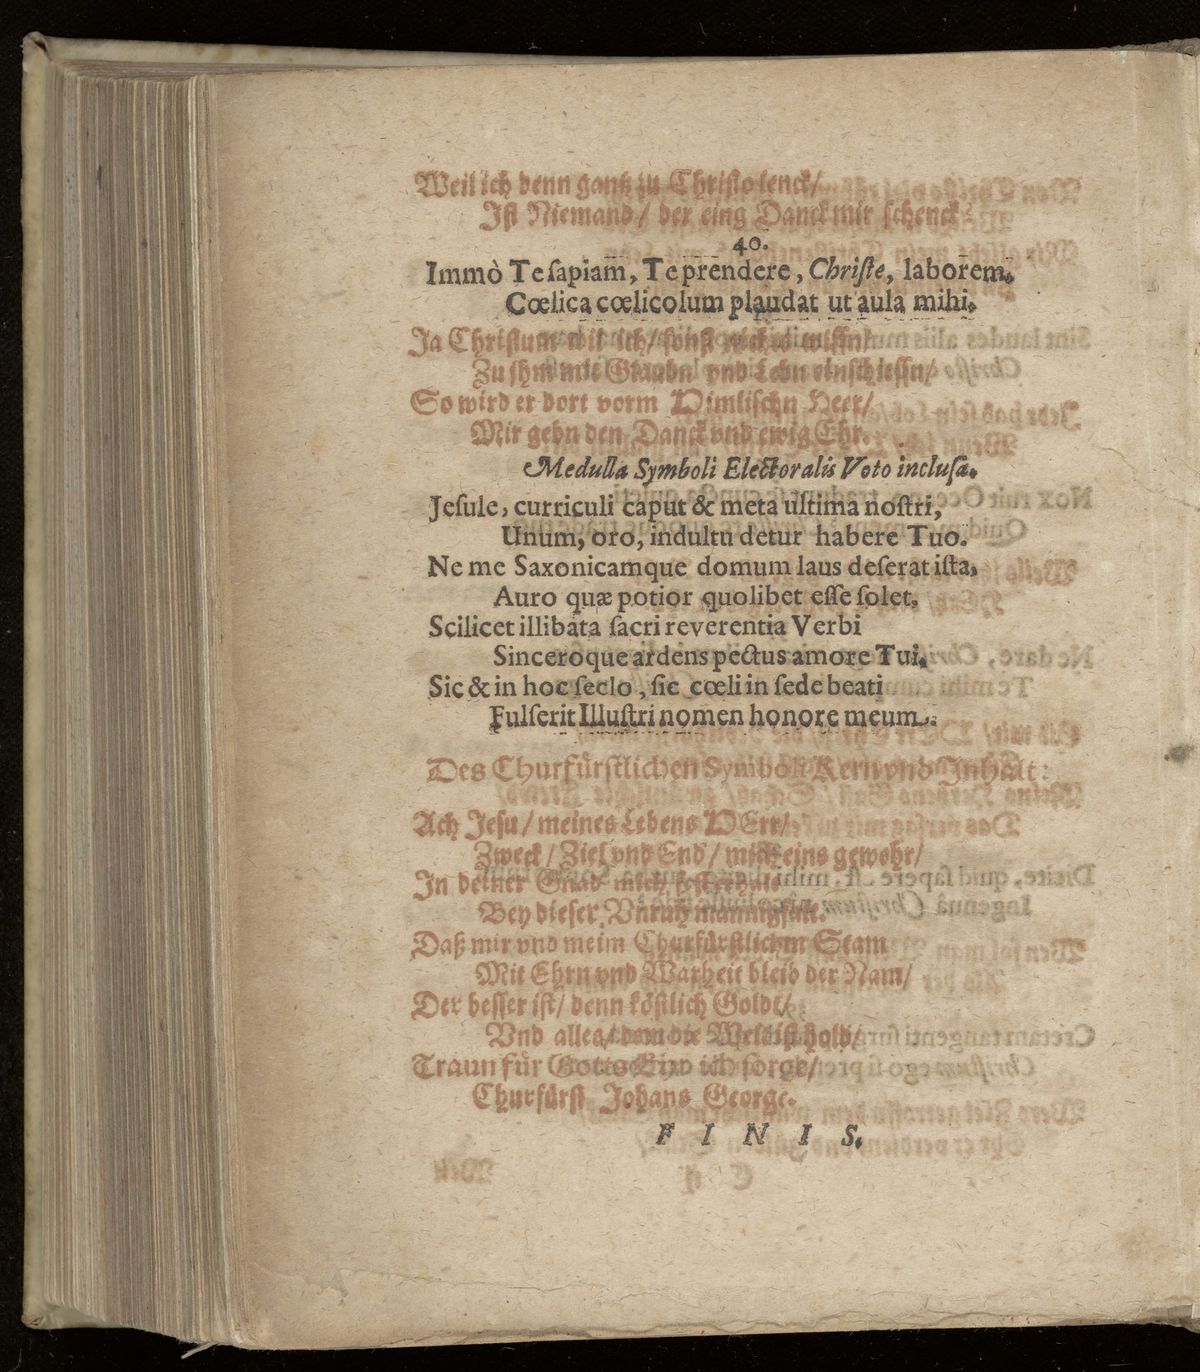 Weil ich denn gantz zu Christo lenck/
Ist Niemand/ der eing Danck mir schenck.
40.
Immò Te sapiam, Te prendere, Christe, laborem,
Cœlica cœlicolum plaudat ut aula mihi.
Ja Christum wil ich/ sonst nichts wissn/
Zu ihm mit Glaubn vnd Lebn einschliessn/
So wird er dort vorm Himlischn Heer/
Mir gebn den Danck vnd ewig Ehr.
Medulla Symboli Electoralis Voto inclusa.
Jesule, curriculi caput & meta ultima nostri,
Unum, oro, indultu detur habere Tuo.
Ne me Saxonicamque domum laus deserat ista,
Auro quæ potior quolibet esse solet,
Scilicet illibata sacri reverentia Verbi
Sinceroque ardens pectus amore Tui.
Sic & in hoc seclo, sic cœli in sede beati
Fulserit Illustri nomen honore meum.
Des Churfürstlichen Symboli Kern vnd Inhalt:
Ach Jesu/ meines Lebens HErr/
Zweck/ Ziel vnd End/ mich eins gewehr/
In deiner Gnad mich fest erhalt
Bey dieser Vnruh mannigfalt.
Daß mir vnd meim Churfürstlichm Stam
Mit Ehrn vnd Warheit bleib der Nam/
Der besser ist/ denn köstlich Goldt/
Vnd alles/ dem die Welt ist hold/
Traun für Gotts Ehr ich sorge/
Churfürst Johans George.
FINIS.